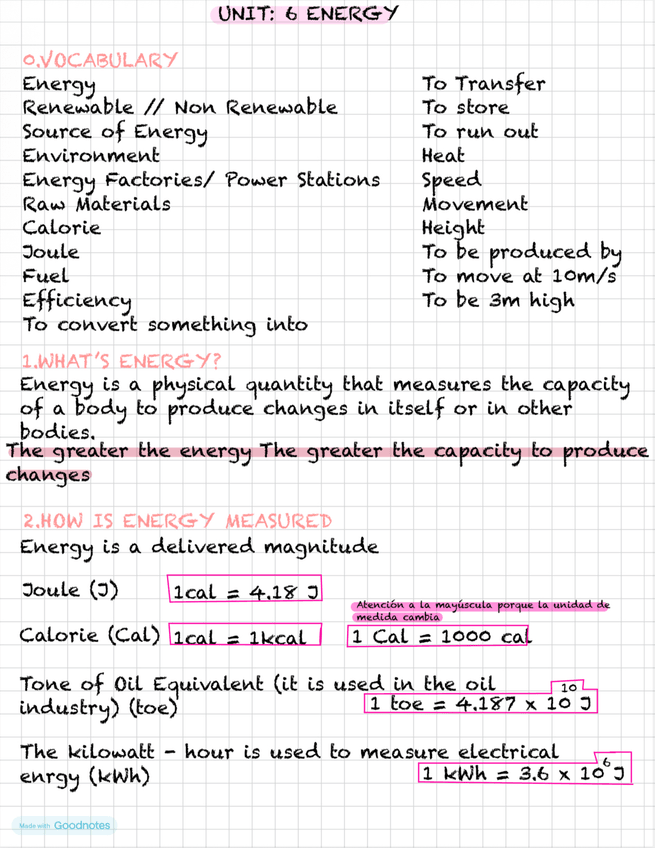 UNIT: 6 ENERGY
0.VOCABULARY
Energy
Renewable // Non Renewable
Source of Energy
Environment
Energy Factories/ Power Stations
Raw Materials
Calorie
Joule
Fuel
Efficiency
To convert something into
To Transfer
To store
To run out
Heat
Speed
Movement
Height
To be produced by
To move at 10m/s
To be 3m high
1.WHAT'S ENERGY?
Energy is a physical quantity that measures the capacity
of a body to produce changes in itself or in other
bodies.
The greater the energy The greater the capacity to produce
changes
2.HOW IS ENERGY MEASURED
Energy is a delivered magnitude
Joule (J) 1cal = 4.18 J
Atención a la mayúscula porque la unidad de
medida cambia
Calorie (Cal) 1cal = 1kcal 1 Cal = 1000 cal
Tone of Oil Equivalent (it is used in the oil
industry) (toe) 1 toe = 4.187 x 10¹⁰ J
The kilowatt - hour is used to measure electrical
enrgy (kWh) 1 kWh = 3.6 x 10⁶ J
Made with Goodnotes